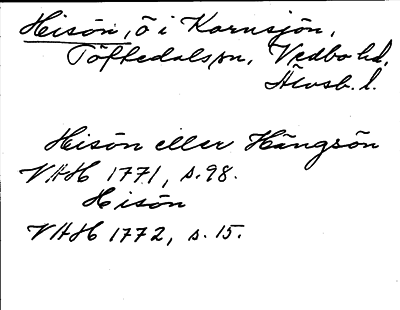 Heisön, ö i Kornsjön,
Töftedals sn, Vedbo hd,
Älvsb. l.
Hisön eller Hängsön
VHH 1771, s. 98.
Hisön
VHH 1772, s. 15.